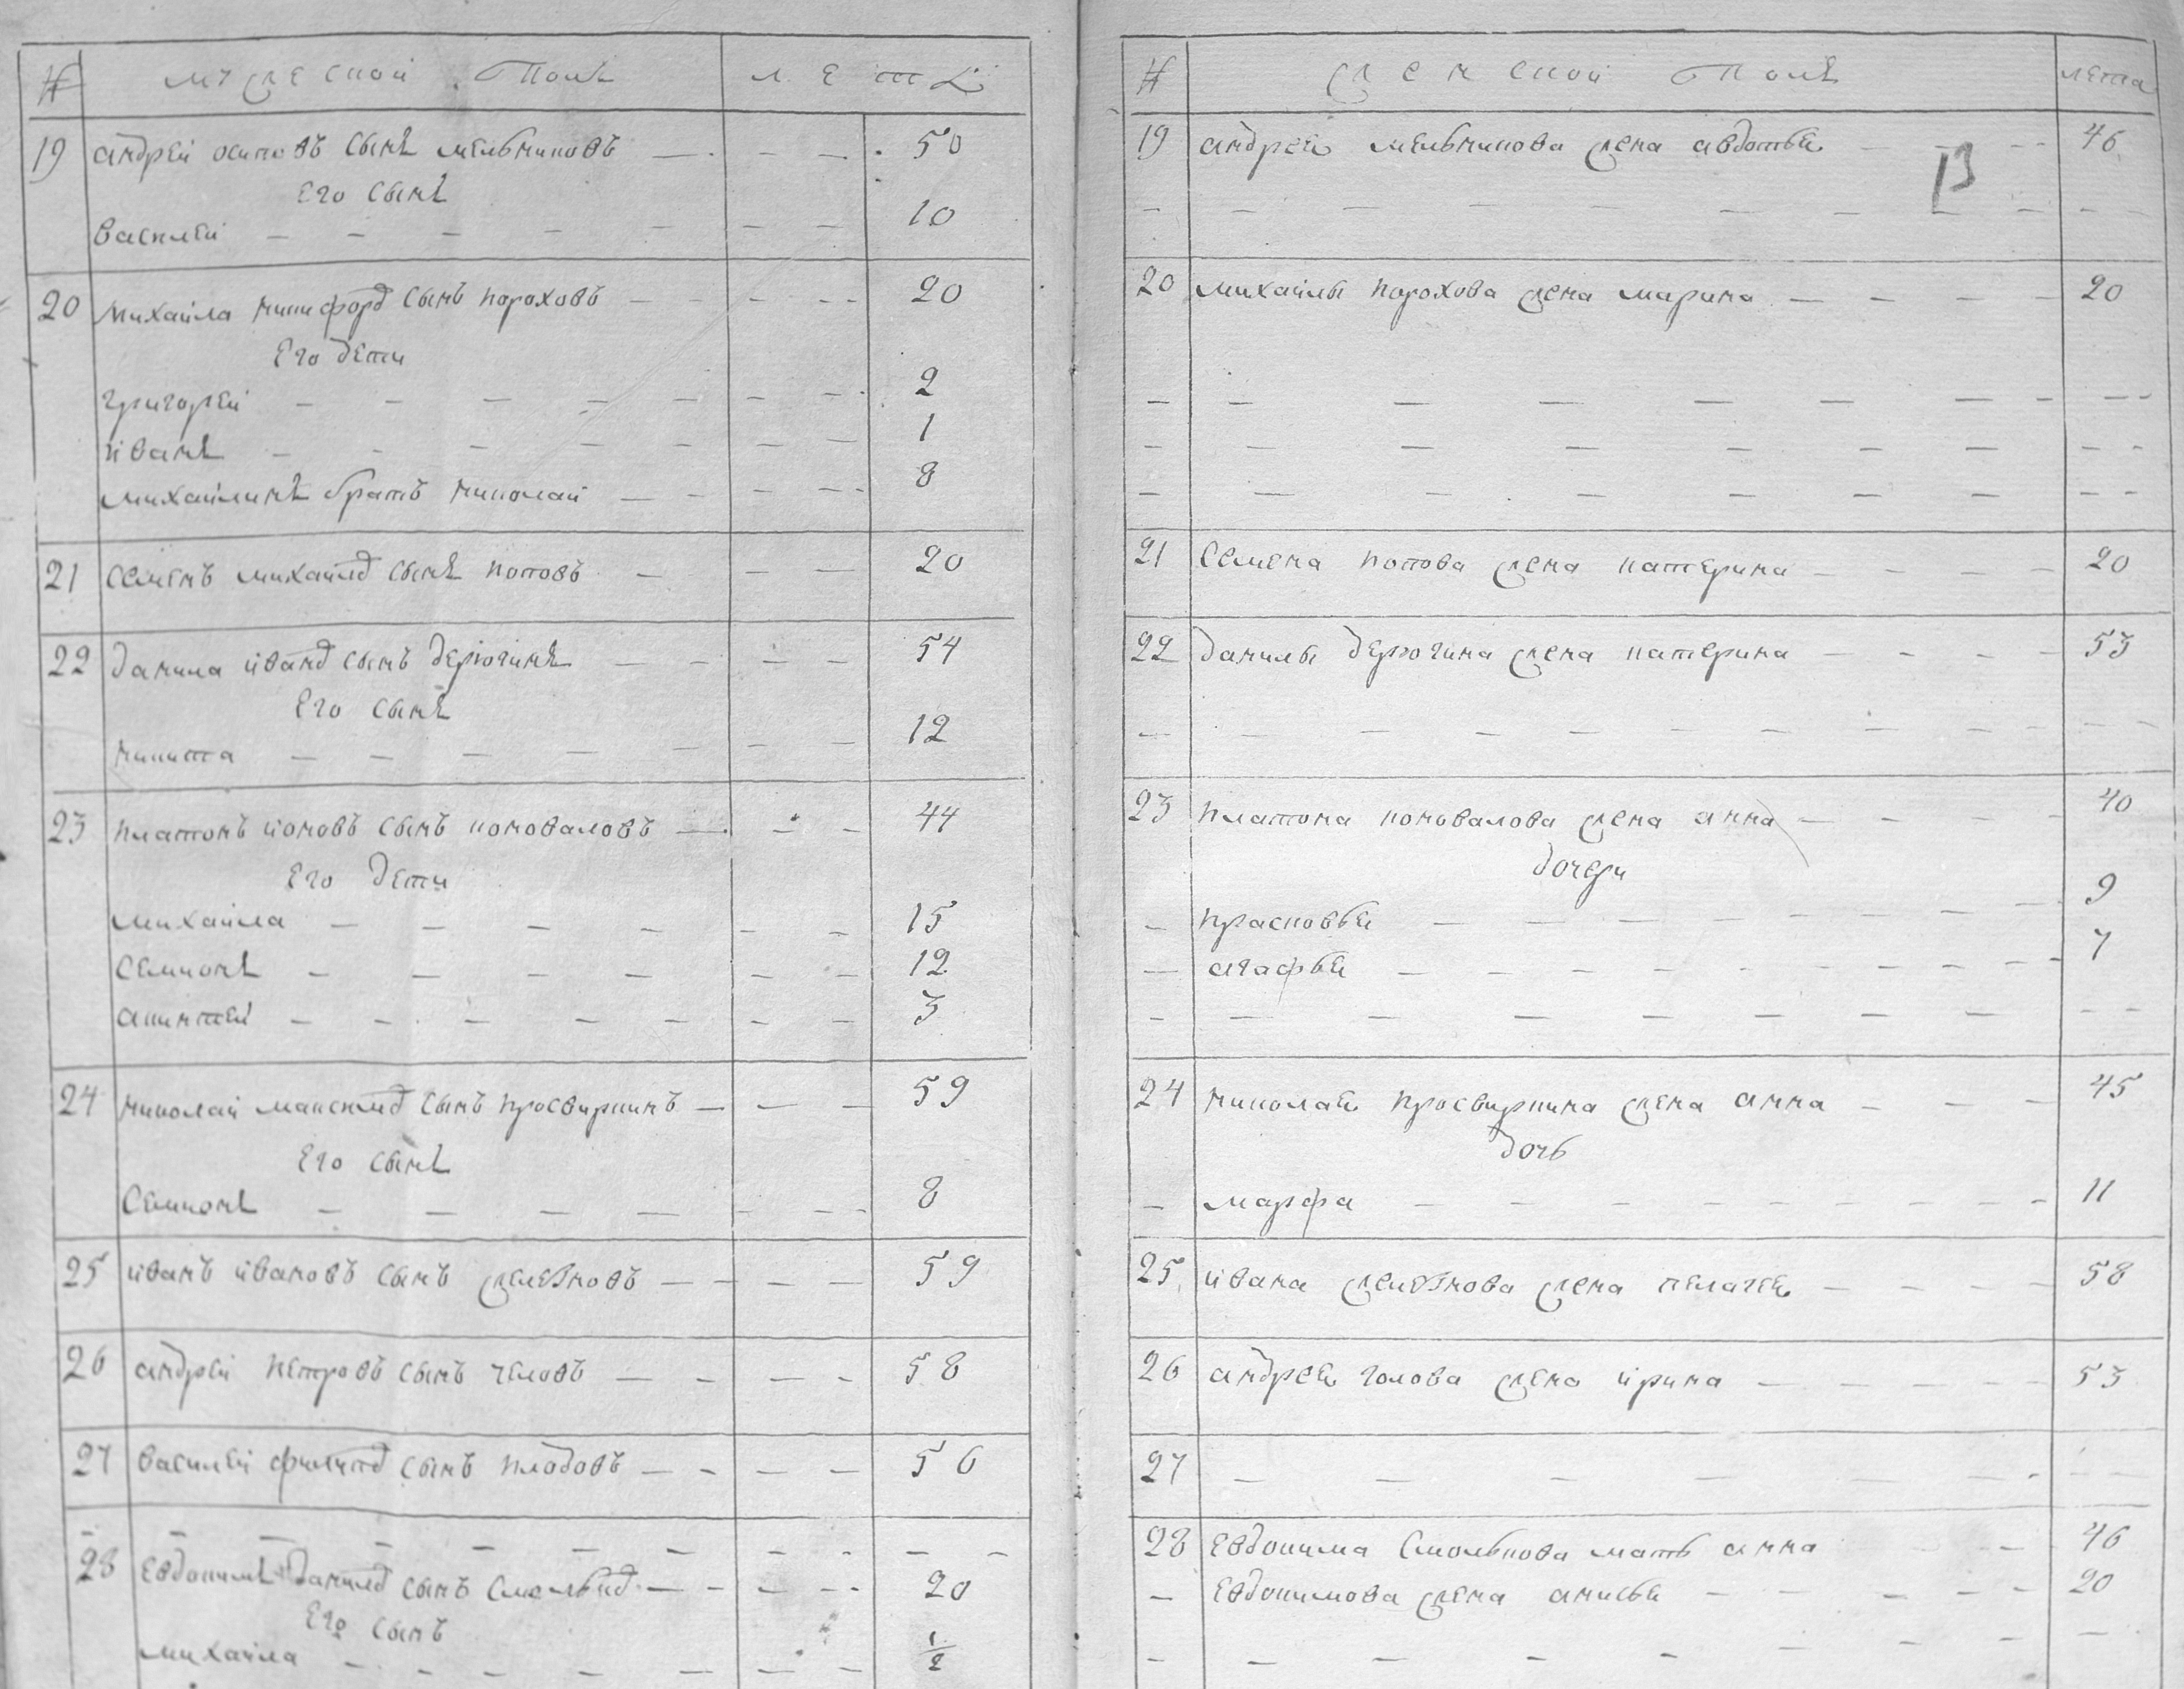 № мужеской полъ лета
19 андрей осиповъ сынъ мельниковъ 50
его сынъ
василей 10
20 михайла никифоръ сынъ пороховъ 20
его дети
григорей 2
иванъ 1
михайлинъ братъ николай 8
21 семенъ михайлъ сынъ поповъ 20
22 данила иванъ сынъ дерюгинъ 54
его сынъ 12
никита
23 платонъ ионовъ сынъ коноваловъ 44
его дети
михайла 15
семионъ 12
акинтей 3
24 николай максимъ сынъ просвиркинъ 59
его сынъ
семионъ 8
25 иванъ ивановъ сынъ 59
26 андрей петровъ сынъ 58
27 василей филипъ сынъ 56
28 евдокимъ данилъ сынъ смольков 20
его сынъ
михайла 1/2
№ женской полъ лета
19 андрея мельникова жена авдотья 46
13
20 михайлы порохова жена марина 20
21 семена попова жена катерина 20
22 данилы дерюгина жена катерина 53
23 платона коновалова жена анна 40
дочери
прасковья 9
агафья 7
24 николая просвиркина жена анна 45
дочь
марфа 11
25 ивана жена пелагея 58
26 андрея голова жена ирина 53
27
28 евдокима смолькова мать анна 46
евдокимова жена анисья 20